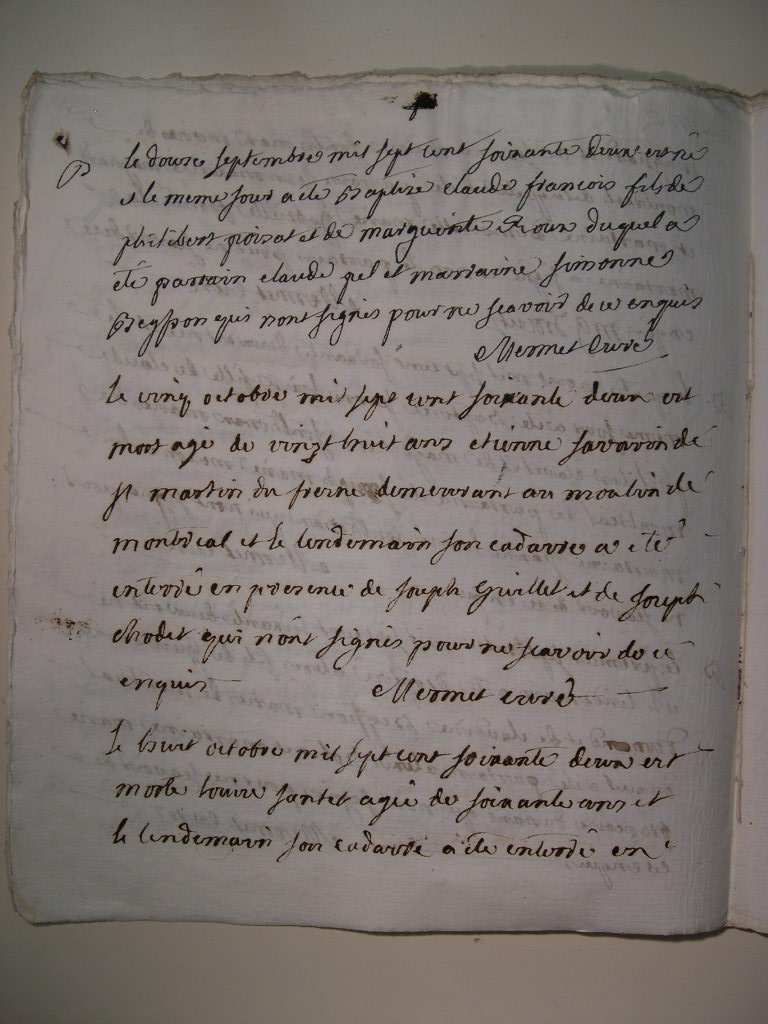 B le douze septembre mil sept cent soixante deux est né
et le meme jour a été Baptize claude francois fils de
philibert poizat et de marguerite Roux duquel a
été parrain claude pel et marraine simonne
qui nont signés pour ne scavoir de ce enquis
Mermet curé
le cinq octobre mil sept cent soixante deux est
mort agé de vingt huit ans etienne savarin de
st martin du fresne demeurant au moulin de
montreal et le lendemain son cadavre a été
enterré en presence de joseph Guillet et de joseph
chodet qui nont signés pour ne scavoir de ce
enquis Mermet curé
le huit octobre mil sept cent soixante deux est
morte louise santet agée de soixante ans et
le lendemain son cadavre a été enterré en